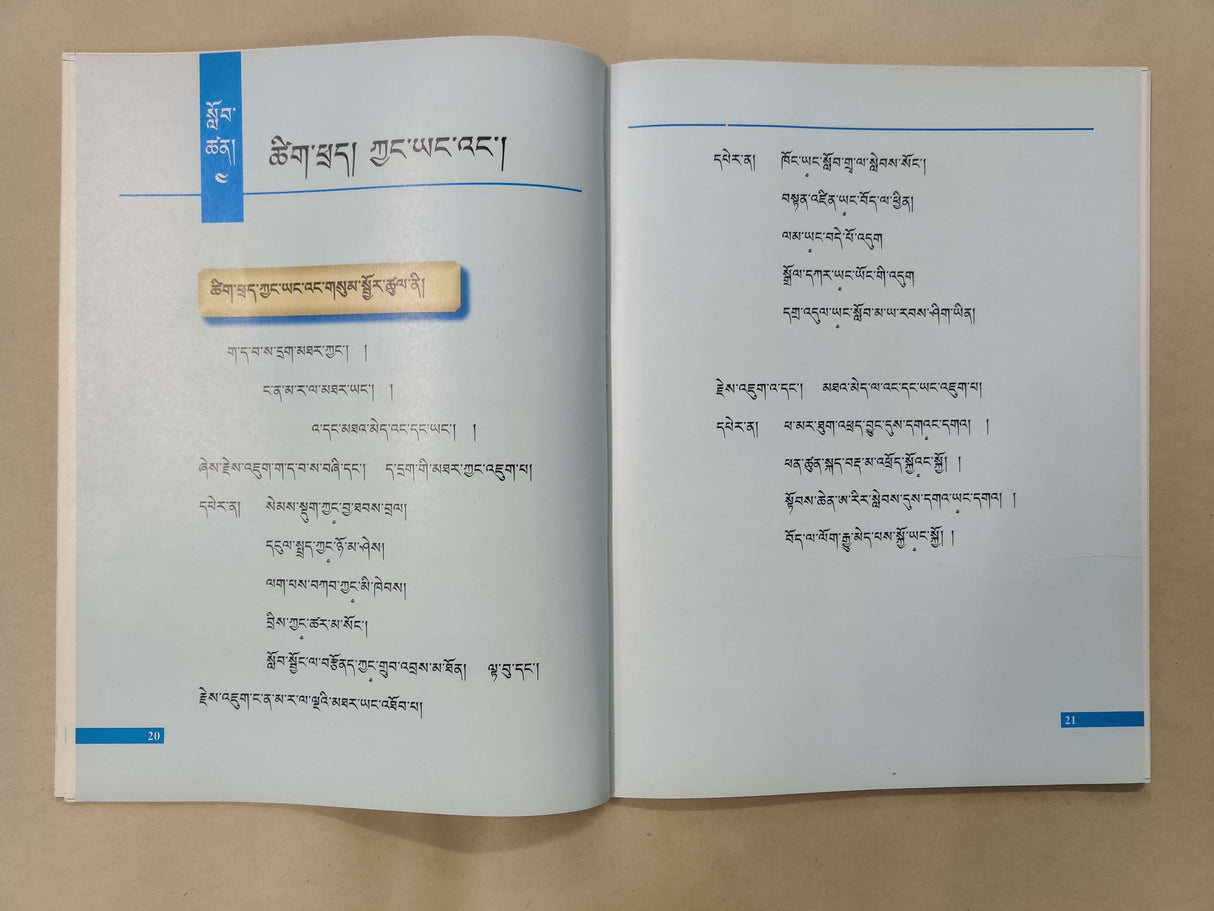 སློབ་
ཚན།
༤
ཚིག་ཕྲད། ཀྱང་ཡང་འང་།
ཚིག་ཕྲད་ཀྱང་ཡང་འང་གསུམ་སྦྱོར་ཚུལ་ནི།
ག་ད་བ་ས་དྲག་མཐར་ཀྱང་། །
ང་ན་མ་ར་ལ་མཐར་ཡང་། །
འ་དང་མཐའ་མེད་འང་དང་ཡང་། །
ཞེས་རྗེས་འཇུག་ག་ད་བ་ས་བཞི་དང་། ད་དྲག་གི་མཐར་ཀྱང་འཇུག་པ།
དཔེར་ན། སེམས་སྡུག་ཀྱང་བྱ་ཐབས་བྲལ།
དངུལ་སྤྲད་ཀྱང་ཉོ་མ་ཤེས།
ལག་པས་བཀབ་ཀྱང་མི་ཁེབས།
བྲིས་ཀྱང་ཚར་མ་སོང་།
སློབ་སྦྱོང་ལ་བརྩོནད་ཀྱང་གྲུབ་འབྲས་མ་ཐོན། ལྟ་བུ་དང་།
རྗེས་འཇུག་ང་ན་མ་ར་ལ་ལྔའི་མཐར་ཡང་འཐོབ་པ།
20
དཔེར་ན། ཁོང་ཡང་སློབ་གྲྭ་ལ་སླེབས་སོང་།
བསྟན་འཛིན་ཡང་བོད་ལ་ཕྱིན།
ལམ་ཡང་བདེ་པོ་འདུག
སྒྲོལ་དཀར་ཡང་ཡོང་གི་འདུག
དགྲ་འདུལ་ཡང་སློབ་མ་ཡ་རབས་ཤིག་ཡིན།
རྗེས་འཇུག་འ་དང་། མཐའ་མེད་ལ་འང་དང་ཡང་འཇུག་པ།
དཔེར་ན། ཕ་མར་ཐུག་འཕྲད་བྱུང་དུས་དགའང་དགའ། །
ཕན་ཚུན་སྐད་བརྡ་མ་འཕྲོད་སྐྱོའང་སྐྱོ། །
སྟོབས་ཆེན་ཨ་རིར་སླེབས་དུས་དགའ་ཡང་དགའ། །
བོད་ལ་ལོག་རྒྱུ་མེད་པས་སྐྱོ་ཡང་སྐྱོ། །
21